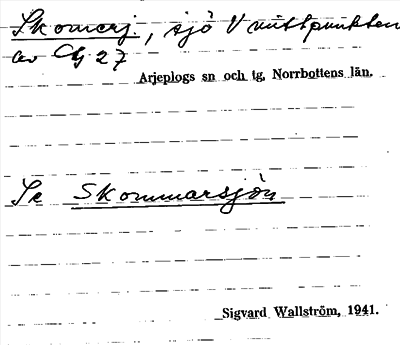 Skomarj., sjö V mittpunkten
av Cg 27
Arjeplogs sn och tg, Norrbottens län.
Se Skommarsjön
Sigvard Wallström, 1941.